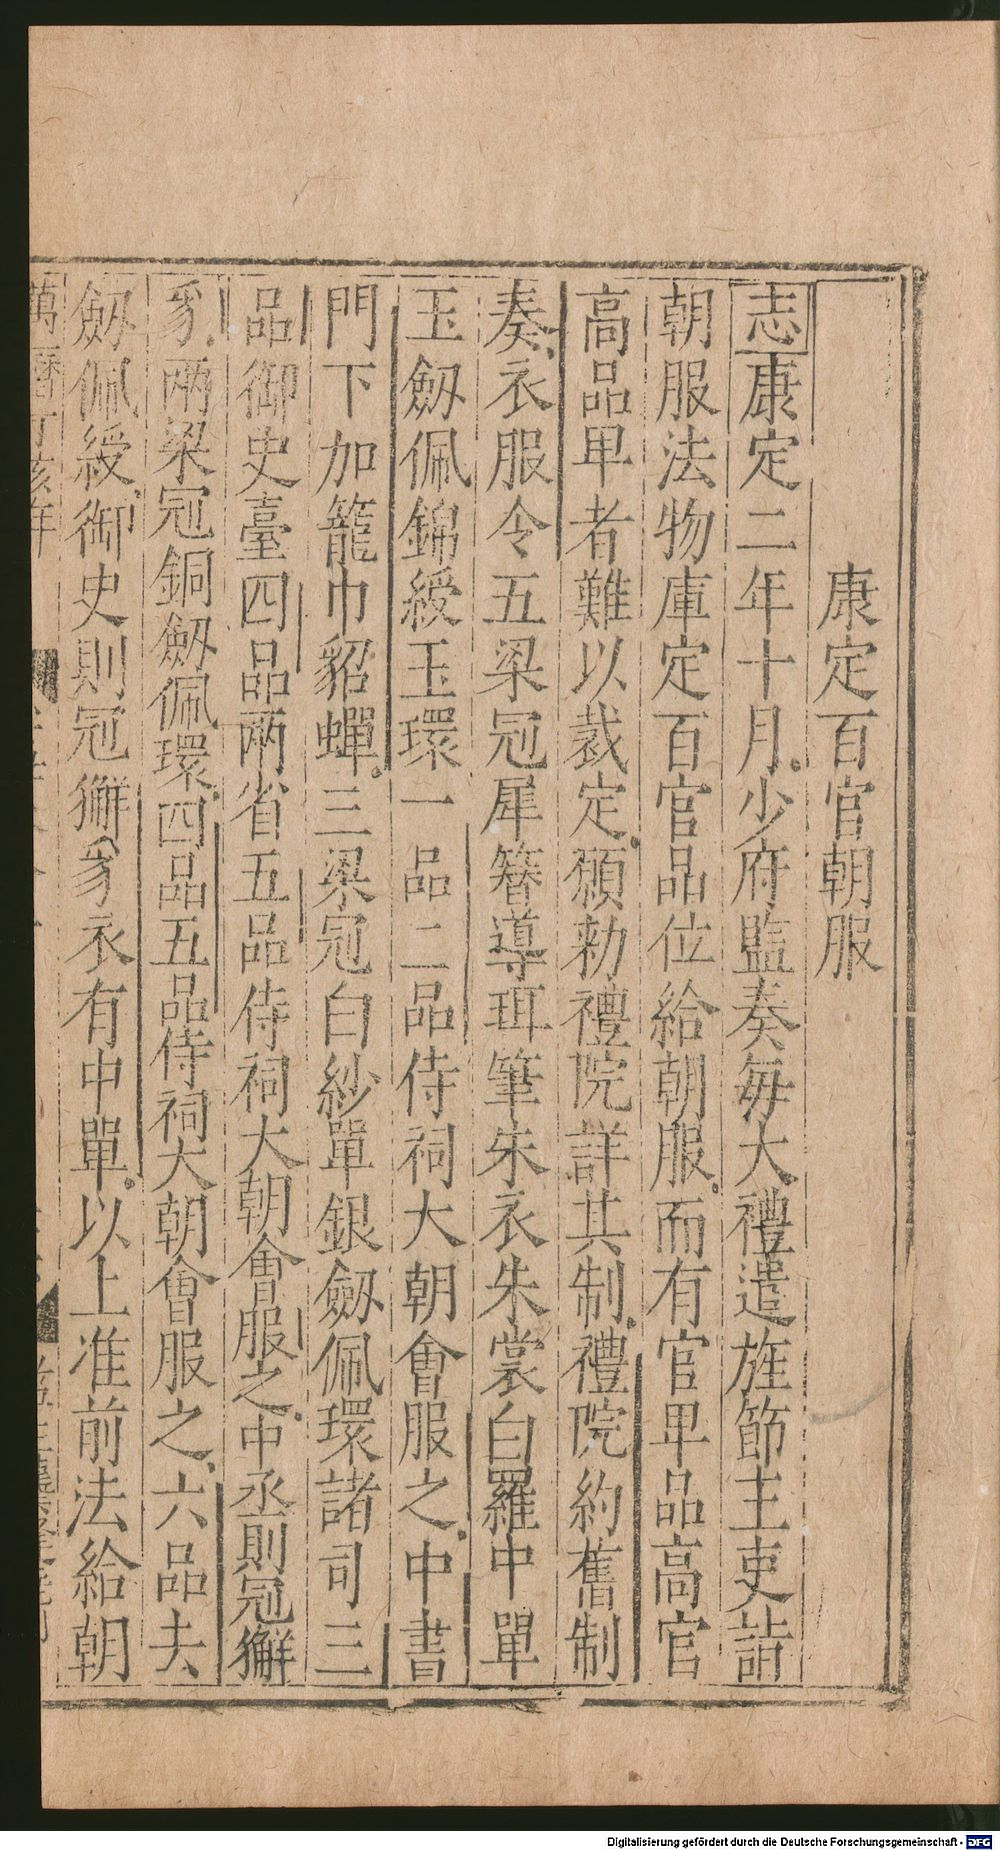 康定百官朝服
志康定二年十月少府監奏每大禮遣旌節主吏詣
朝服法物庫定百官品位給朝服而有官卑品高官
高品卑者難以裁定頒勑禮院詳其制禮院約舊制
奏衣服令五梁冠犀簪導珥筆朱衣朱裳白羅中單
玉劔佩錦綬玉環一品二品侍祠大朝會服之中書
門下加籠巾貂蟬三梁冠白紗單銀劔佩環諸司三
品御史臺四品兩省五品侍祠大朝會服之中丞則冠獬
豸兩梁冠銅劔佩環四品五品侍祠大朝會服之六品去
劔佩綬御史則冠獬豸衣有中單以上准前法給朝
萬曆丁亥年
Digitalisierung gefördert durch die Deutsche Forschungsgemeinschaft - DFG